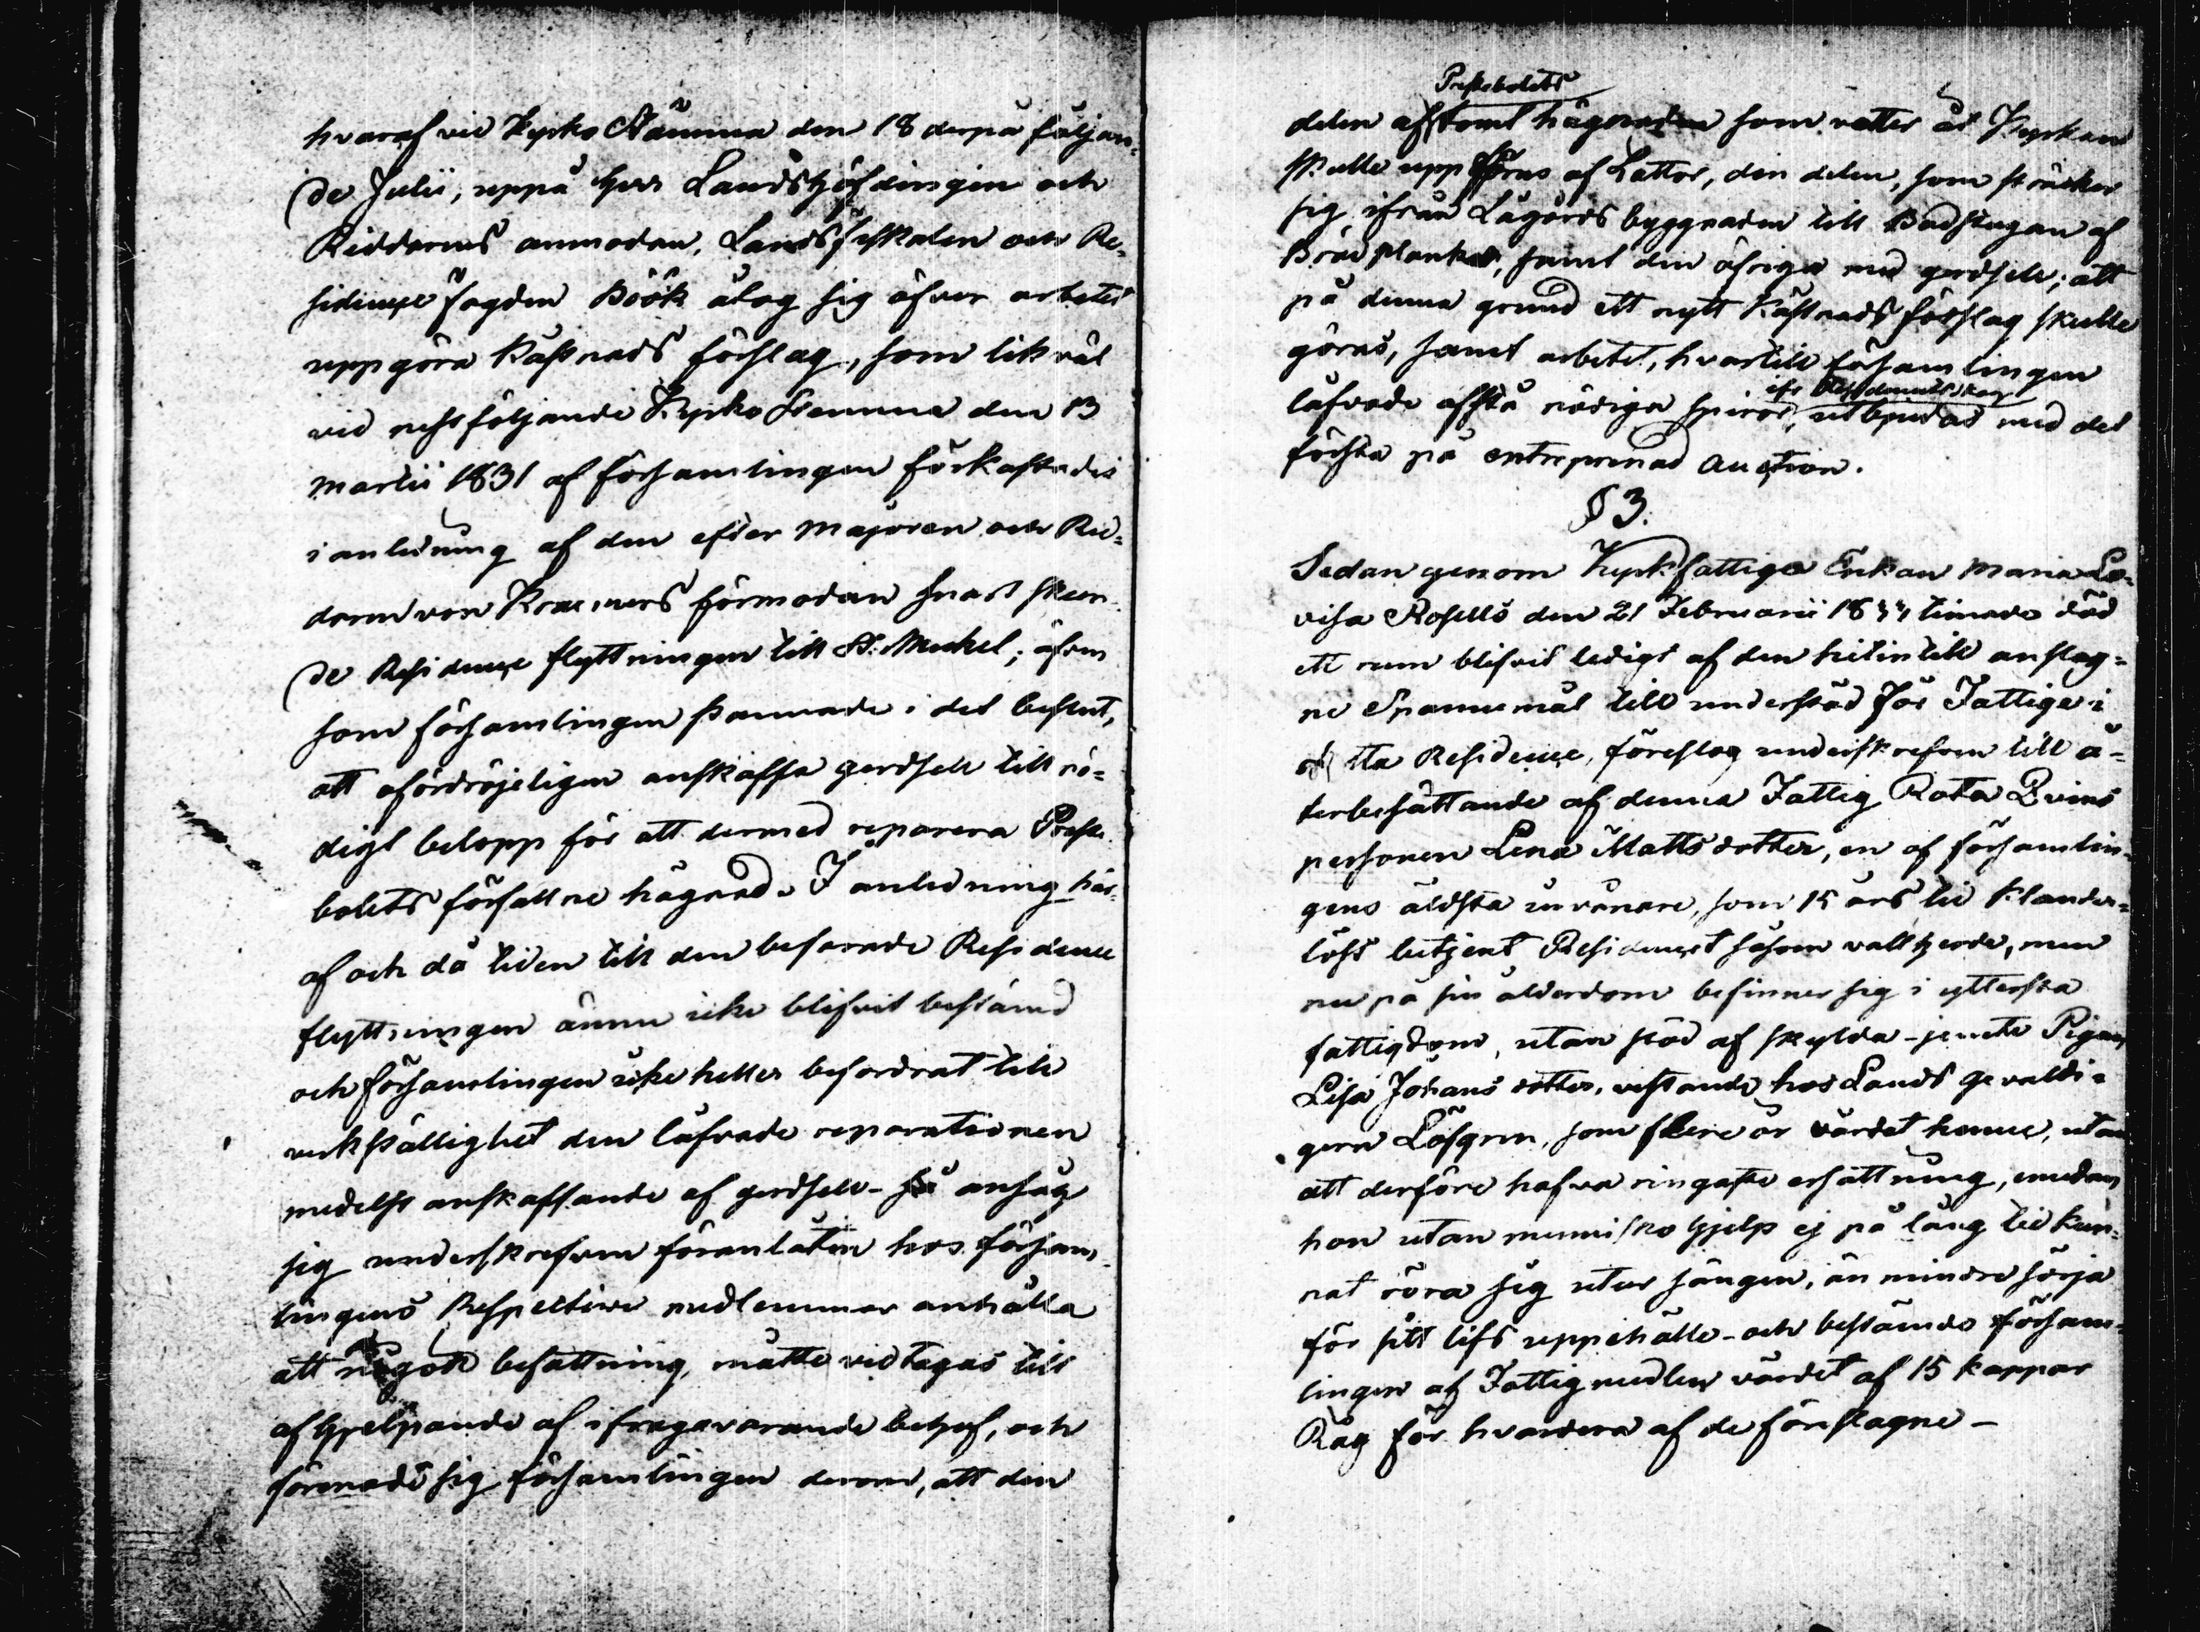 hvaraf vid Kyrko Stämma den 18 derpå följan=
de Julii, uppå Herr Landshöfdingen och
Riddarens anmodan, Landsfiskalen och Re=
sidence fogden Böök åtog sig öfver arbetet
uppgöra kåstnads förslag, som likväl
vid nestföljande Kyrko Stemma den 13
Martii 1831 af församlingen förkastades
i anledning af den efter Majoren och Rid=
daren von Kraemers förmodan snart skeen=
de Residence flyttningen till St. Mickel; äfven
som församlingen stannade i det beslut,
att ofördröjeligen anskaffa gerdsele till nö=
digt belopp för att dermed reparera Preste
bolets förfallne hägnad. I anledning här=
af och då tiden till den befarade Residence
flyttningen ännu icke blifvit bestämd
och församlingen icke heller befordrat till
verkställighet den låfvade reparationen
medelst anskaffande af gerdsele - så ansåg
sig underskrefven föranlåten hos försam=
lingens Respective medlemmar anhålla
att någon befattning måtte vidtagas till
afhjelpande af ifrågavarande behof, och
förenade sig församlingen derom, att den
Prestebolets
delen af tomt hägnaden som vetter åt Kyrkan
skulle uppföras af Lattor, den delen, som sträcker
sig ifrån Lagårds byggnaden till Badstugan af
Bräd plankor, samt den öfriga med gerdsele; att
på denna grund ett nytt kåstnads förslag skulle
göras, samt arbetet, hvartill församlingen
låfvade afstå nödiga spiror, utbjudas med det
första på entreprenad auction.
§ 3.
Sedan genom Kyrkfattiga Enkan Maria Lo=
visa Rosells den 21 Februarii 1844 timade död
ett rum blifvit ledigt af den hitintill anslag=
ne Spannemål till understöd för Fattige i
detta Residence, föreslog underskrefven till å=
terbesättande af denna Fattig Rota Qvins
personen Lena Mattsdotter, en af församlin=
gens äldsta invånare, som 15 års tid klander=
löst betjent Residencet såsom vallherde, men
nu på sin ålderdom befinner sig i yttersta
fattigdom, utan stöd af skylda - jemte Pigan
Lisa Johansdotter, vistande hos Lands gevaldi=
gern Löfgren, som flere år vårdat henne, utan
att derföre hafva ringaste ersättning, emedan
hon utan mennisko hjelp ej på lång tid kun=
nat röra sig utur sängen, än mindre sörja
för sitt lifs uppehälle - och bestämde försam=
lingen af Fattig medlen värdet af 15 kappar
Råg för hvardera af de föreslagne -